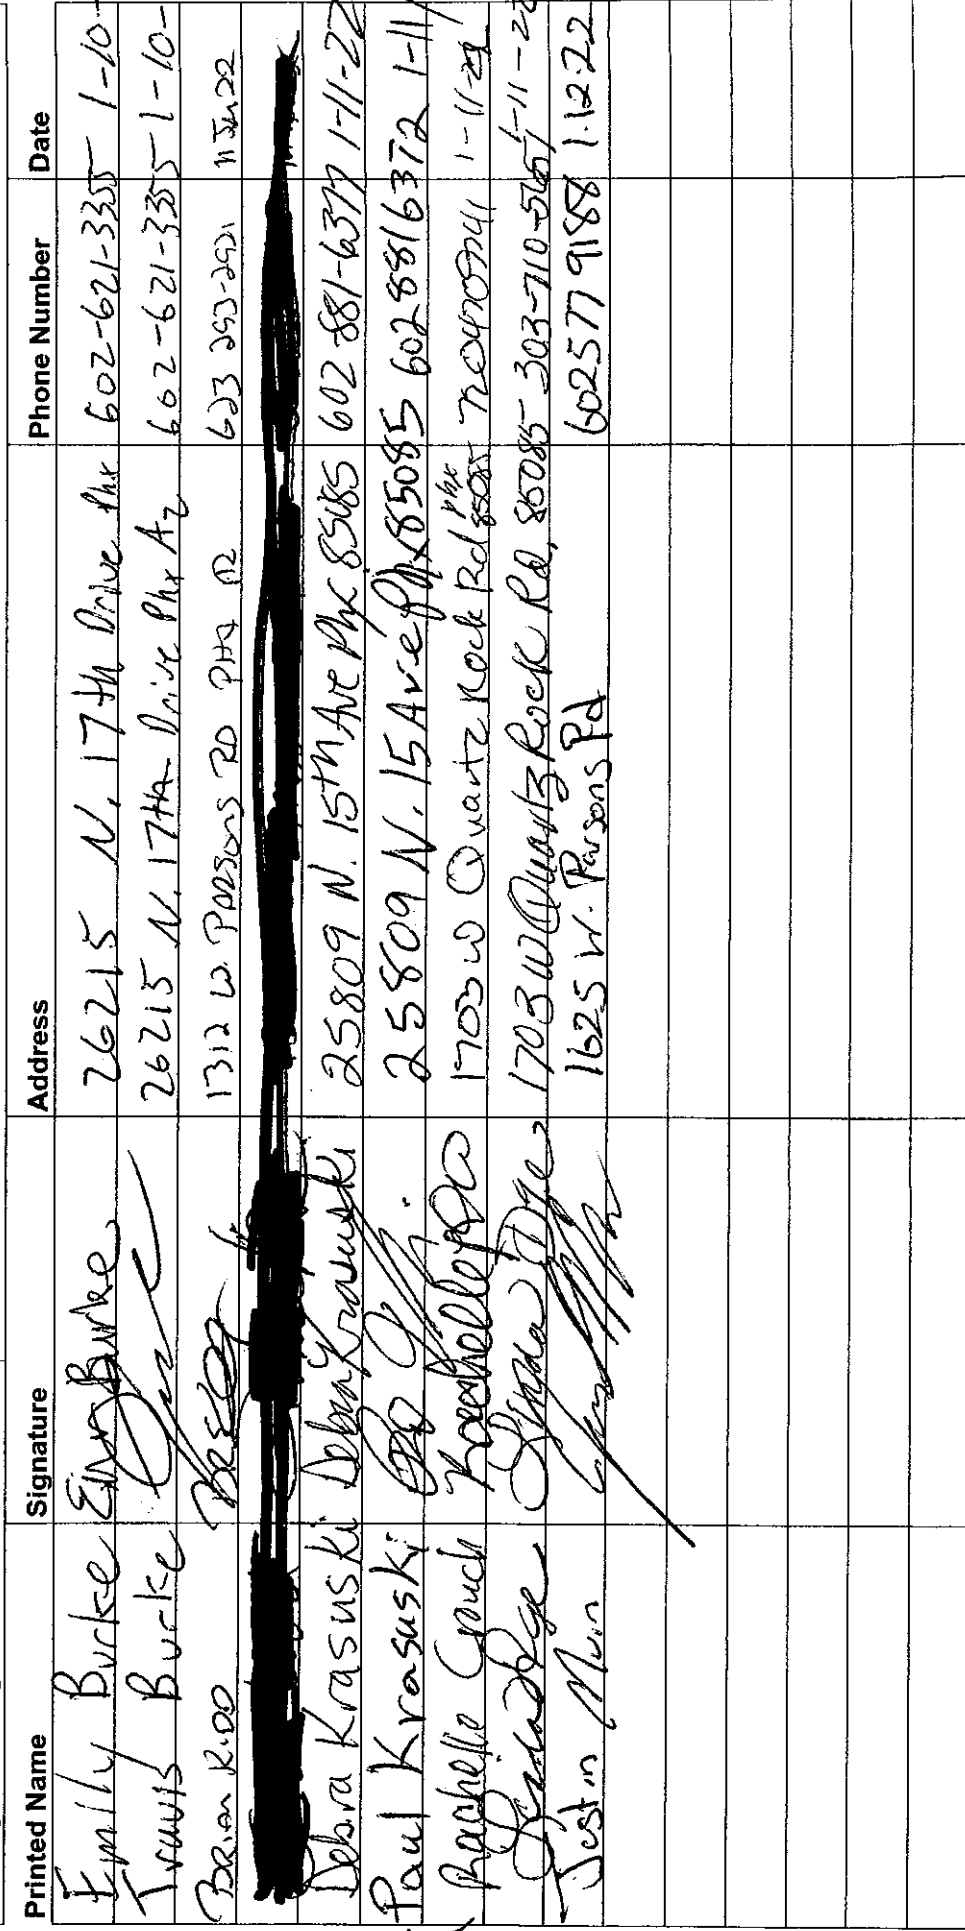 Printed Name Signature Address Phone Number Date
Emily Burke Emily Burke 26215 N. 17th Drive Phx 602-621-3355 1-10-
Travis Burke 26215 N. 17th Drive Phx Az 602-621-3355 1-10-
Brian Kidd 1312 W. Parsons RD PHX AZ 623 293-2921 11 Jan 22
Debra Krasuski Debra Krasuski 25809 N. 15th Ave Phx 85085 602-881-6377 1-11-22
Paul Krasuski 25809 N. 15 Ave Phx 85085 6028816372 1-11/
Rachelle Crouch 1703 W Quartz Rock Rd Phx 85085 1-11-22
Linda Dye Linda Dye 1703 W Quartz Rock Rd, 85085 303-710-5651 1-11-22
Justin 1625 W. Parsons Rd 6025779188 1.12.22